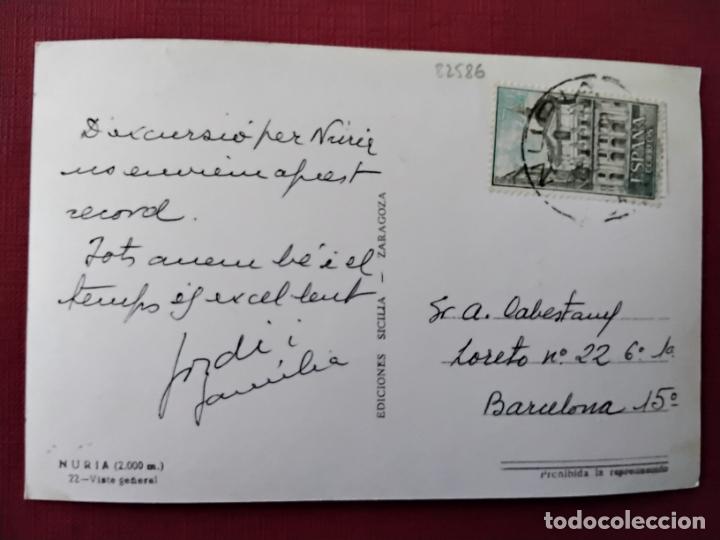 82586
D'excursió per Núria
us enviem aquest
record.
Tots anem bé i el
temps és excel·lent
Jordi i
família
NURIA (2.000 m.)
22-Vista general
EDICIONES SICILIA - ZARAGOZA
ESPAÑA
CORREOS
Sr. A. Cabestany
Loreto nº 22 6º 1ª
Barcelona 15º
Prohibida la reproducción
todocoleccion.net